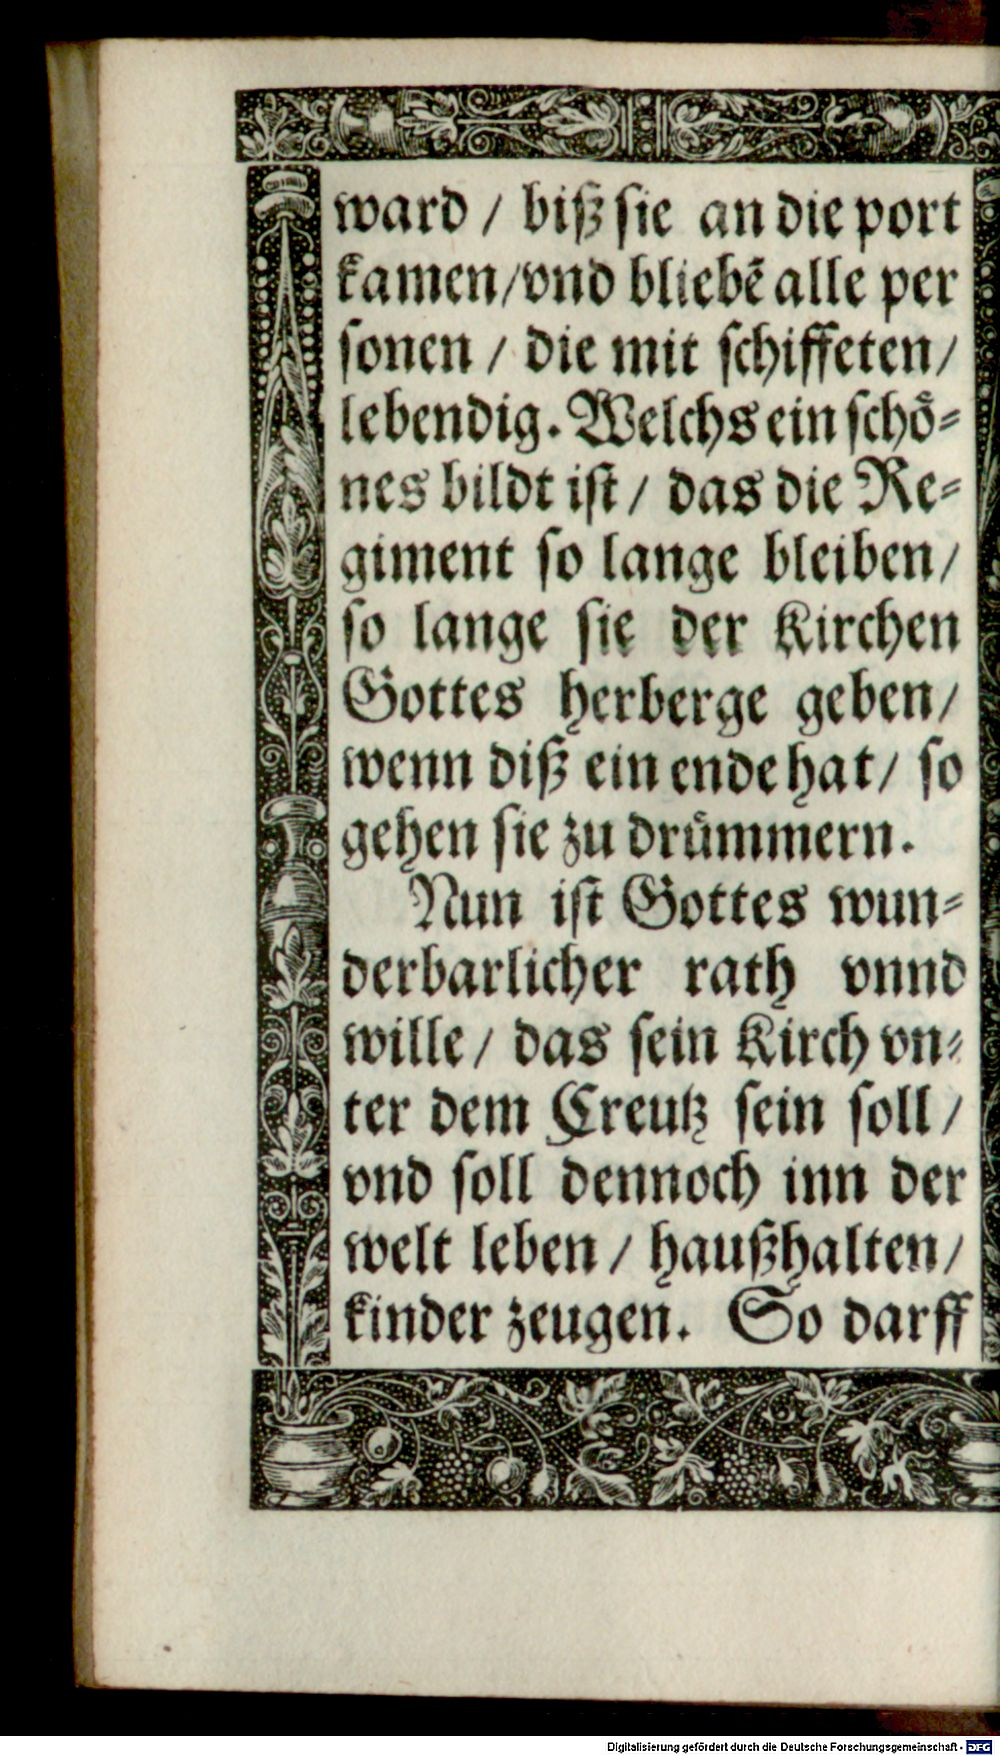 ward / biß sie an die port
kamen/vnd bliebẽ alle per
sonen / die mit schiffeten/
lebendig. Welchs ein schoͤ-
nes bildt ist / das die Re-
giment so lange bleiben/
so lange sie der Kirchen
Gottes herberge geben/
wenn diß ein ende hat/ so
gehen sie zu druͤmmern.
Nun ist Gottes wun-
derbarlicher rath vnnd
wille / das sein Kirch vn-
ter dem Creutz sein soll /
vnd soll dennoch inn der
welt leben / haußhalten/
kinder zeugen. So darff
Digitalisierung gefördert durch die Deutsche Forschungsgemeinschaft - DFG